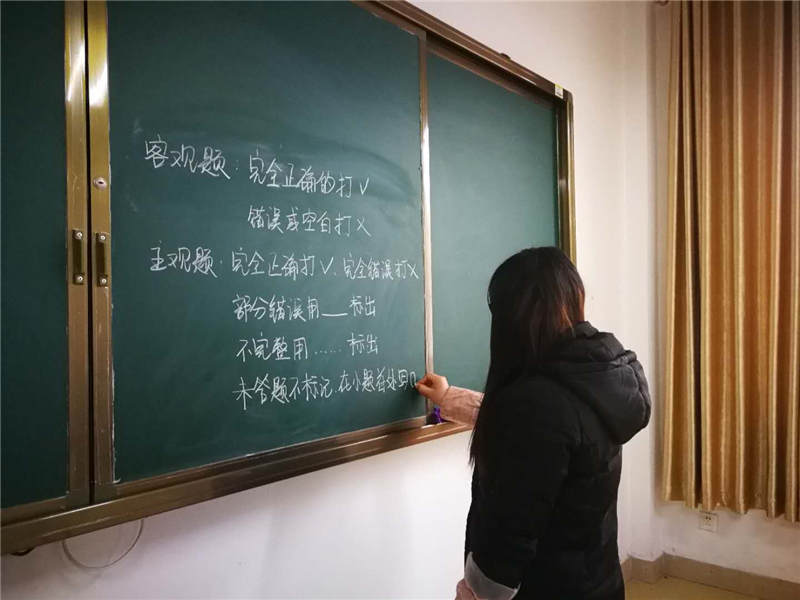 客观题：完全正确的打√
错误或空白打×
主观题：完全正确打√、完全错误打×
部分错误用——标出
不完整用……标出
未答题不标记，在小题首处写0